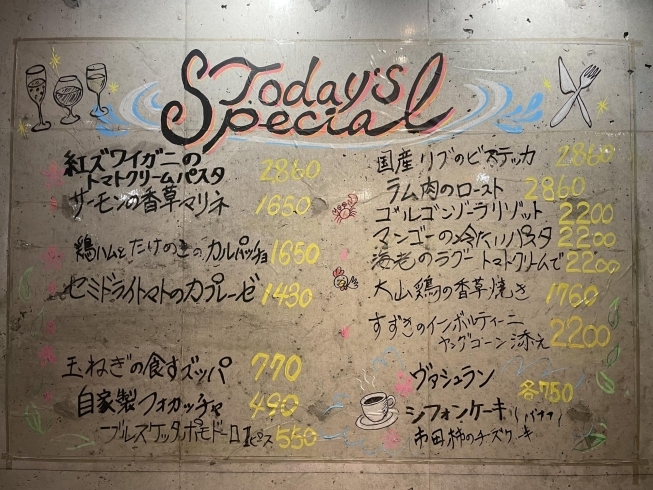 Today's
Special
紅ズワイガニの
トマトクリームパスタ 2860
サーモンの香草マリネ 1650
鶏ハムとたけのこのカルパッチョ 1650
セミドライトマトのカプレーゼ 1430
玉ねぎの食すズッパ 770
自家製フォカッチャ 490
ブルスケッタポモドーロ 1ピス 550
国産リブのビステッカ 2860
ラム肉のロースト 2860
ゴルゴンゾーラリゾット 2200
マンゴーの冷たいパスタ 2200
海老のラグートマトクリームで 2200
大山鶏の香草焼き 1760
すずきのインボルティーニ
ヤングコーン添え 2200
ヴァシュラン
各750
シフォンケーキ
市田柿のチーズケーキ